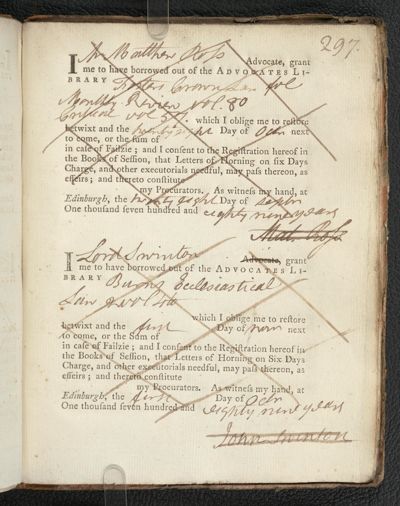 297.
I Mr Matthew Ross Advocate, grant
me to have borrowed out of the ADVOCATES LI-
BRARY Fosters Crown Law fol
Monthly Review vol. 80
Critical vol which I oblige me to reſtore
betwixt and the twenty eight Day of Octr next
to come, or the ſum of
in caſe of Failzie ; and I conſent to the Regiſtration hereof in
the Books of Seſſion, that Letters of Horning on ſix Days
Charge, and other executorials needful, may paſs thereon, as
effeirs ; and thereto conſtitute
my Procurators. As witneſs my hand, at
Edinburgh, the twenty eight Day of Septr
One thouſand ſeven hundred and eighty nine years
Matt. Ross
I Lord Swinton Advocate, grant
me to have borrowed out of the ADVOCATES LI-
BRARY Burns Ecclesiastical
Law 2 vol 4to
which I oblige me to reſtore
betwixt and the first Day of novr next
to come, or the Sum of
in caſe of Failzie ; and I conſent to the Regiſtration hereof in
the Books of Seſſion, that Letters of Horning on Six Days
Charge, and other executorials needful, may paſs thereon, as
effeirs ; and thereto conſtitute
my Procurators. As witneſs my hand, at
Edinburgh, the first Day of Octr
One thouſand ſeven hundred and eighty nine years
John Swinton